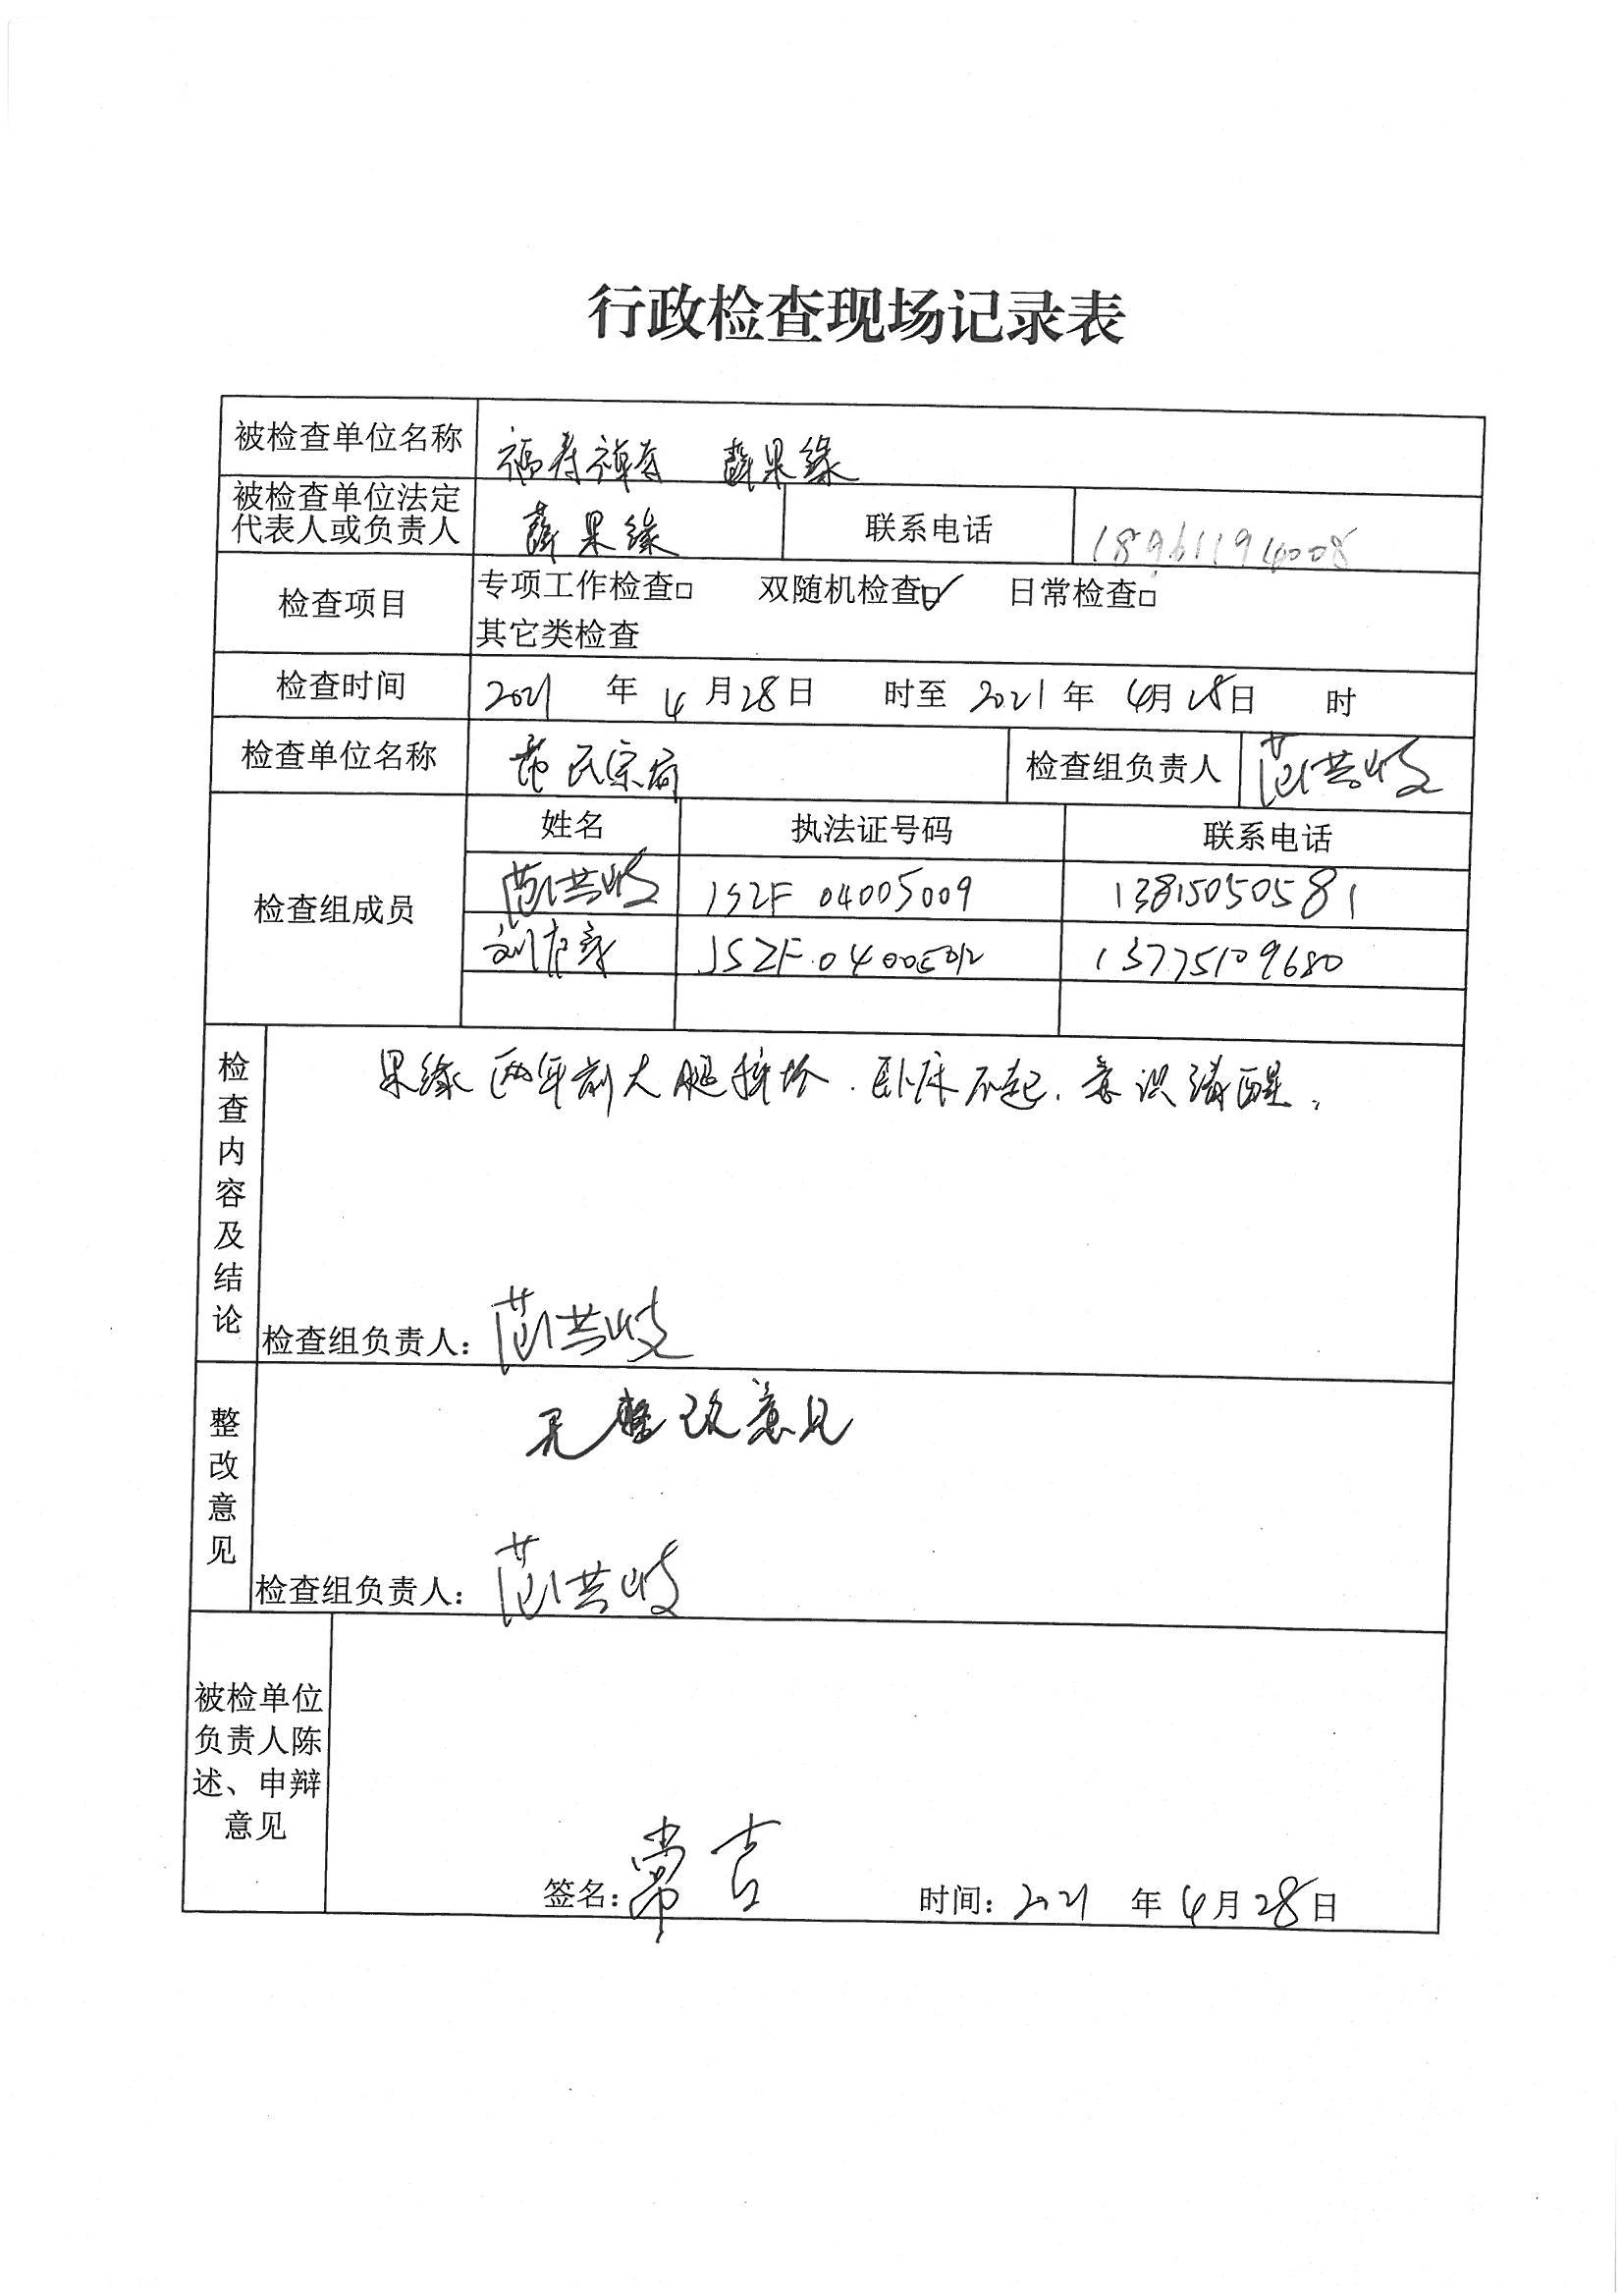 行政检查现场记录表
被检查单位名称 福寿禅寺 薛果缘
被检查单位法定代表人或负责人 薛果缘 联系电话 18961194008
检查项目 专项工作检查□ 双随机检查☑ 日常检查□
其它类检查
检查时间 2021 年 4 月 28 日 时至 2021 年 4月 28日 时
检查单位名称 民宗局 检查组负责人 范洪岐
检查组成员 姓名 执法证号码 联系电话
范洪岐 JSZF 04005009 13815050581
JSZF 04005012 13775109680
检查内容及结论
果缘两年前大腿摔坏.卧床不起.意识清醒。
检查组负责人: 范洪岐
整改意见
无整改意见
检查组负责人: 范洪岐
被检单位负责人陈述、申辩意见
签名: 常吉 时间: 2021 年 4 月 28 日